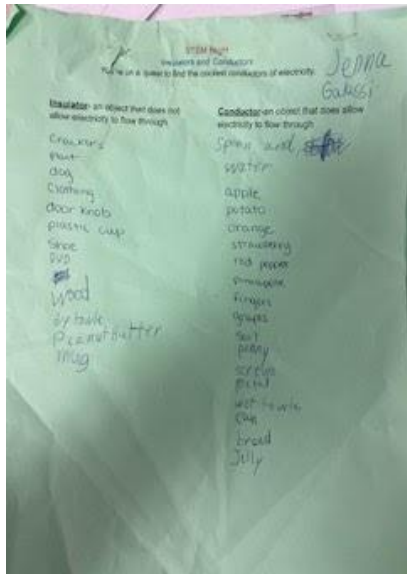 STEM Night
Insulators and Conductors
You're on a quest to find the coolest conductors of electricity.
Jenna
Galassi
Insulator- an object that does not
allow electricity to flow through
Crackers
Plant
dog
Clothing
door knob
plastic cup
Shoe
DVD
Wood
dry towle
Peanut butter
mug
Conductor-an object that does allow
electricity to flow through
Spoon and
water
apple
potato
orange
strawberry
red pepper
pineapple
fingers
grapes
penny
screws
wet towle
can
bread
Jelly